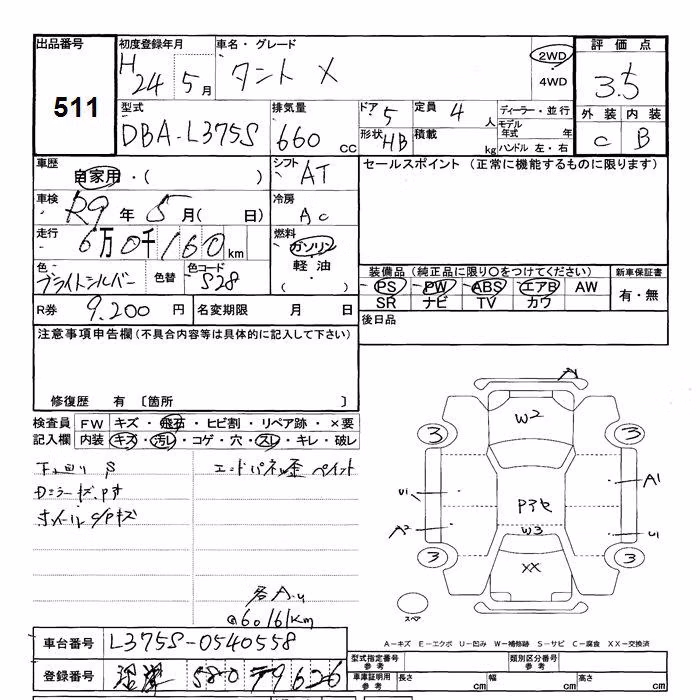 出品番号 初度登録年月 車名・グレード 評価点
511
H 24 5月 タント X 2WD 4WD 3.5
外装 内装
C B
型式 排気量 ドア 5 定員 4人 ディーラー・並行
DBA-L375S 660cc 形状 HB 積載 kg モデル年式 年 ハンドル 左・右
車歴 自家用・( ) シフト AT セールスポイント (正常に機能するものに限ります)
車検 R9年 5月( 日) 冷房 AC
走行 6万0千160km 燃料 ガソリン 軽油 ( )
色 ブライトシルバー 色替 色コード S28
装備品 (純正品に限り○をつけてください) 新車保証書
PS PW ABS エアB AW 有・無
SR ナビ TV カワ
R券 9,200円 名変期限 月 日 後日品
注意事項申告欄 (不具合内容等は具体的に記入して下さい)
修復歴 有 〔箇所 〕
検査員記入欄 FW キズ・飛石・ヒビ割・リペア跡・×要
内装 キズ・汚レ・コゲ・穴・スレ・キレ・破レ
下回り S エンドパネル歪 ペイント
Dミラーキズ.Pオ
ホイールC/Pキズ
@60161km
A1
W2
3 3
U1 A1
Pアセ
A2 W3 U1
3 3
XX
スペア
A-キズ E-エクボ U-凹み W-補修跡 S-サビ C-腐食 XX-交換済
車台番号 L375S-0540558
登録番号 沼津 580 テ9626
型式指定番号 参考 類別区分番号 参考
車庫証明用 参考 長さ cm 幅 cm 高さ cm